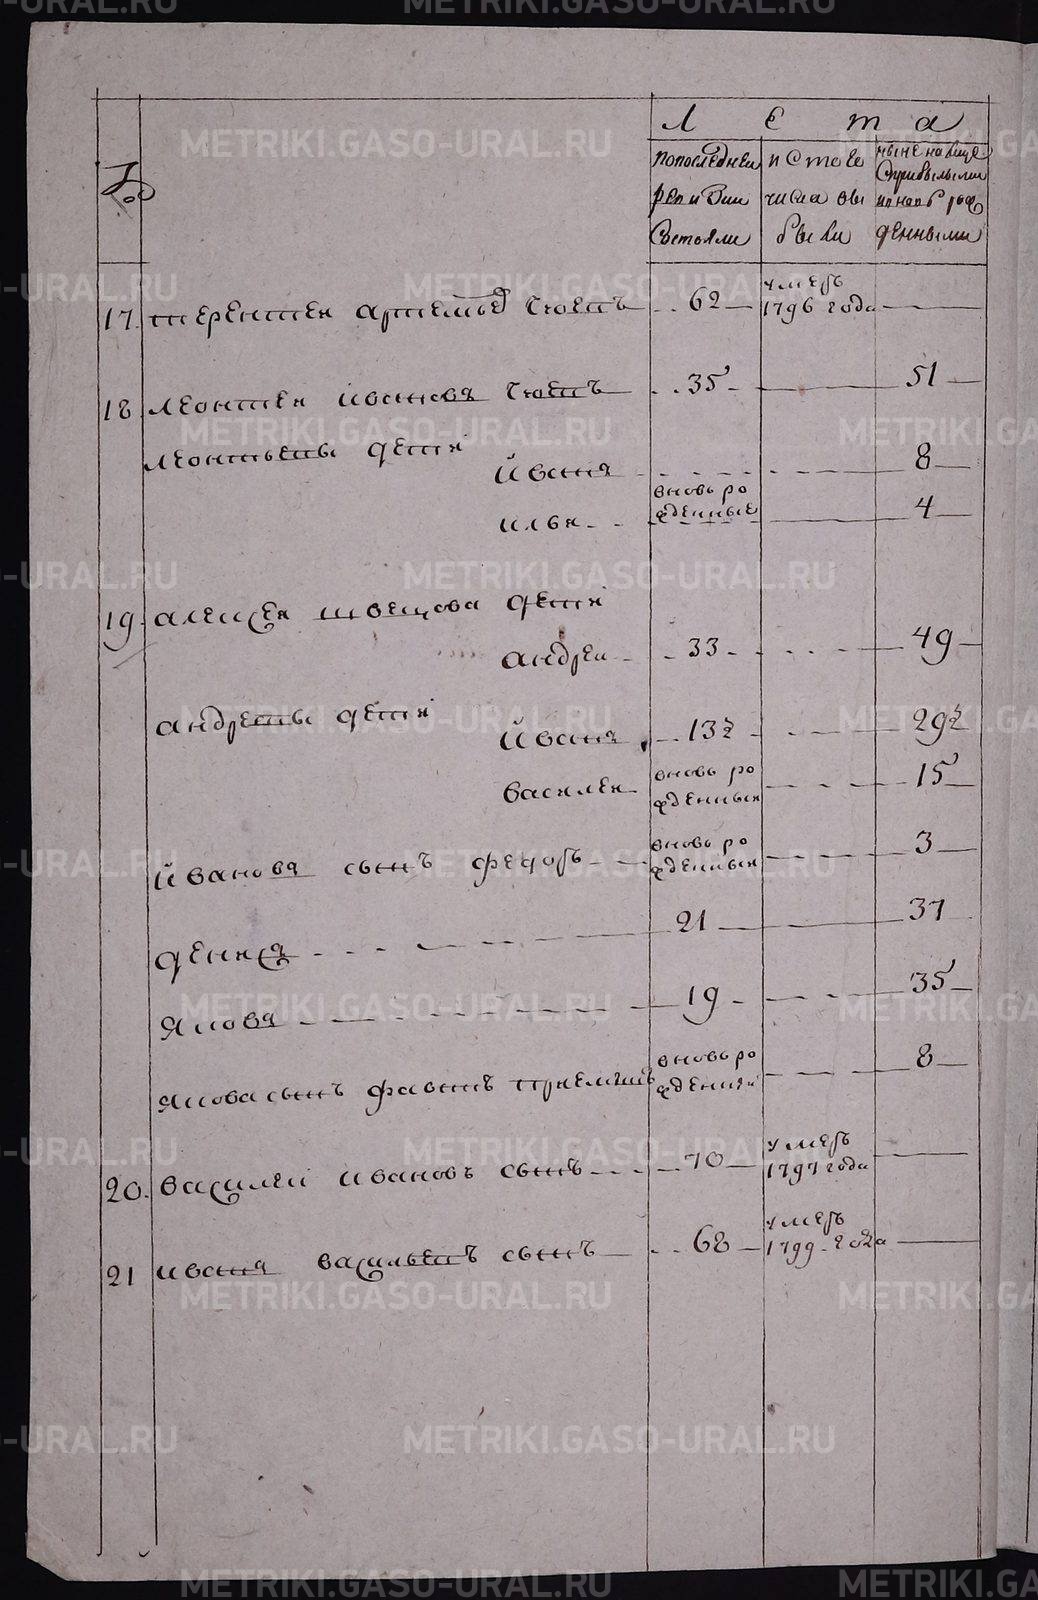 Лета
№
по последней ревизии состояли
ис того числа выбыли
ныне налице с прибылыми и новорожденными
17. терентей артемьев сынъ 62 умеръ 1796 года
18. леонтей ивановъ сынъ 35 51
леонтьевы дети
иванъ 8
илья вновь рожденные 4
19. алексея швецова дети
андреи 33 49
андреевы дети
иванъ 13½ 29½
василеи вновь рожденныи 15
иванова сынъ федоръ вновь рожденныи 3
денисъ 21 37
яковъ 19 35
якова сынъ приемышъ вновь рожденныи 8
20. василеи ивановъ сынъ 70 умеръ 1797 года
21 иванъ васильевъ сынъ 68 умеръ 1799 года
METRIKI.GASO-URAL.RU